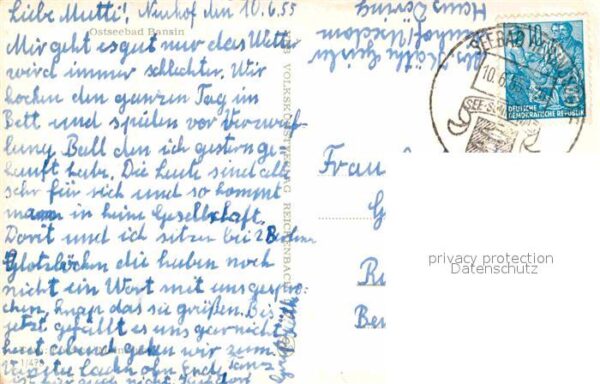 Liebe Mutti!, Neuhof den 10.6.55
Mir geht es gut nur das Wetter
wird immer schlechter. Wir
hocken den ganzen Tag im
Bett und spielen vor Verzweif-
lung Ball den ich gestern ge-
kauft habe. Die Leute sind alle
sehr für sich und so kommt
man in keine Gesellschaft.
Dorit und ich sitzen bei 2
Glotzböcken die haben noch
nicht ein Wort mit uns gespro-
chen, knap das sie grüßen. Bis
jetzt gefällt es uns gar nicht
heut abend gehen wir zum
laden ohne Ende
auch nicht
Ostseebad Bansin
VOLKSKUNSTVERLAG REICHENBACH
Neuhof/Usedom
SEEBAD
10.6.
DEUTSCHE
DEMOKRATISCHE REPUBLIK
5
Frau
G
R
Be
privacy protection
Datenschutz